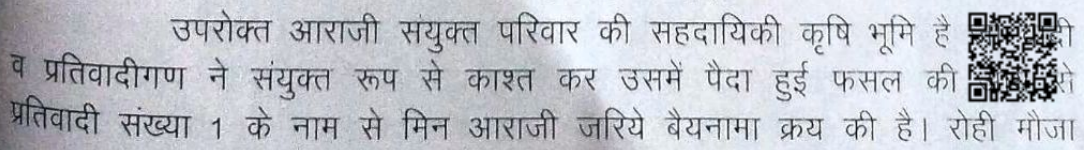 उपरोक्त आराजी संयुक्त परिवार की सहदायिकी कृषि भूमि है
व प्रतिवादीगण ने संयुक्त रूप से काश्त कर उसमें पैदा हुई फसल की
प्रतिवादी संख्या 1 के नाम से मिन आराजी जरिये बैयनामा क्रय की है। रोही मौजा